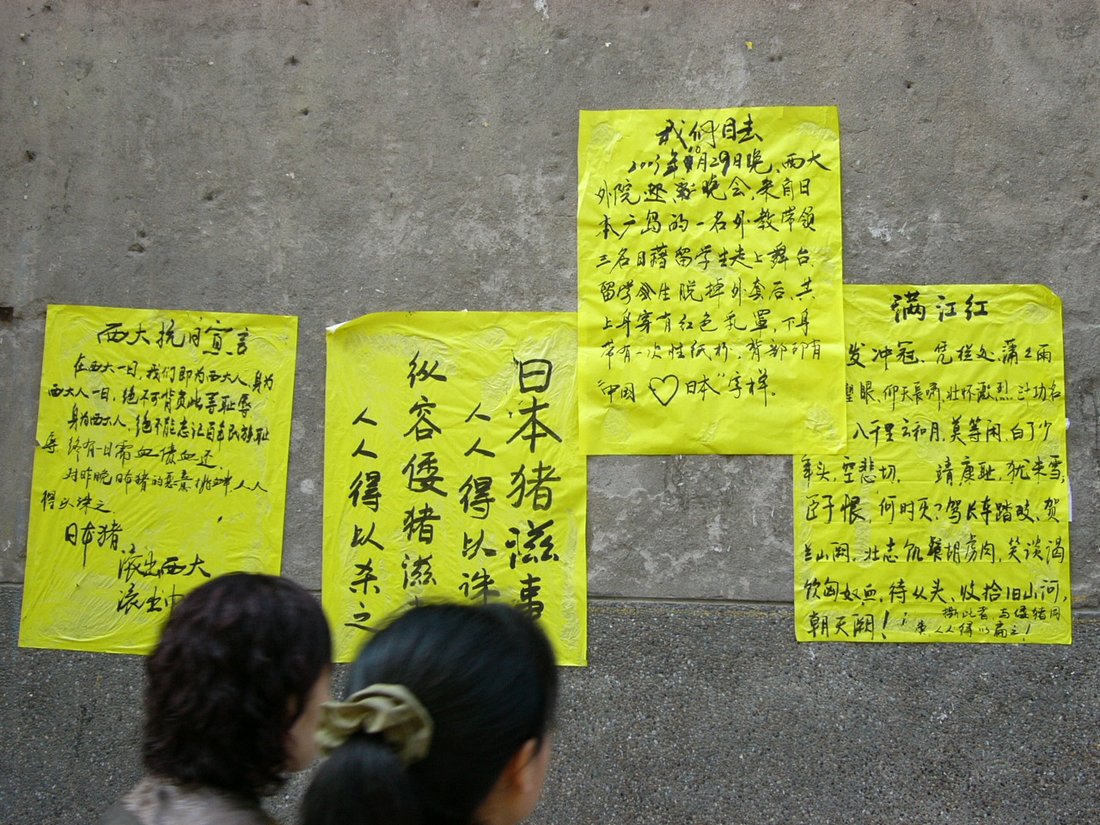 西大抗日宣言
在西大一日,我们即为西大人,身为
西大人一日,绝不可背负此等耻辱
身为西大人,绝不能忘记百年民族耻
辱,终有一日需血债血还
对昨晚日本猪的恶意挑衅 人人
得以诛之
日本猪
滚出西大
滚出
日本猪滋事
人人得以诛
纵容倭猪滋
人人得以杀之
我们目击
2003年10月29日晚,西大
外院迎新晚会,来自日
本广岛的一名外教带领
三名日籍留学生走上舞台,
留学生脱掉外套后,其
上身穿有红色乳罩,下身
带有一次性纸杯,背部印有
"中国♡日本"字样。
满江红
发冲冠,凭栏处,潇潇雨
望眼,仰天长啸,壮怀激烈,三十功名
八千里云和月,莫等闲,白了少
年头,空悲切. 靖康耻,犹未雪,
臣子恨,何时灭?驾长车踏破,贺
兰山阙,壮志饥餐胡虏肉,笑谈渴
饮匈奴血,待从头,收拾旧山河,
朝天阙!
撕此者,与倭猪同
人人得以扁之!